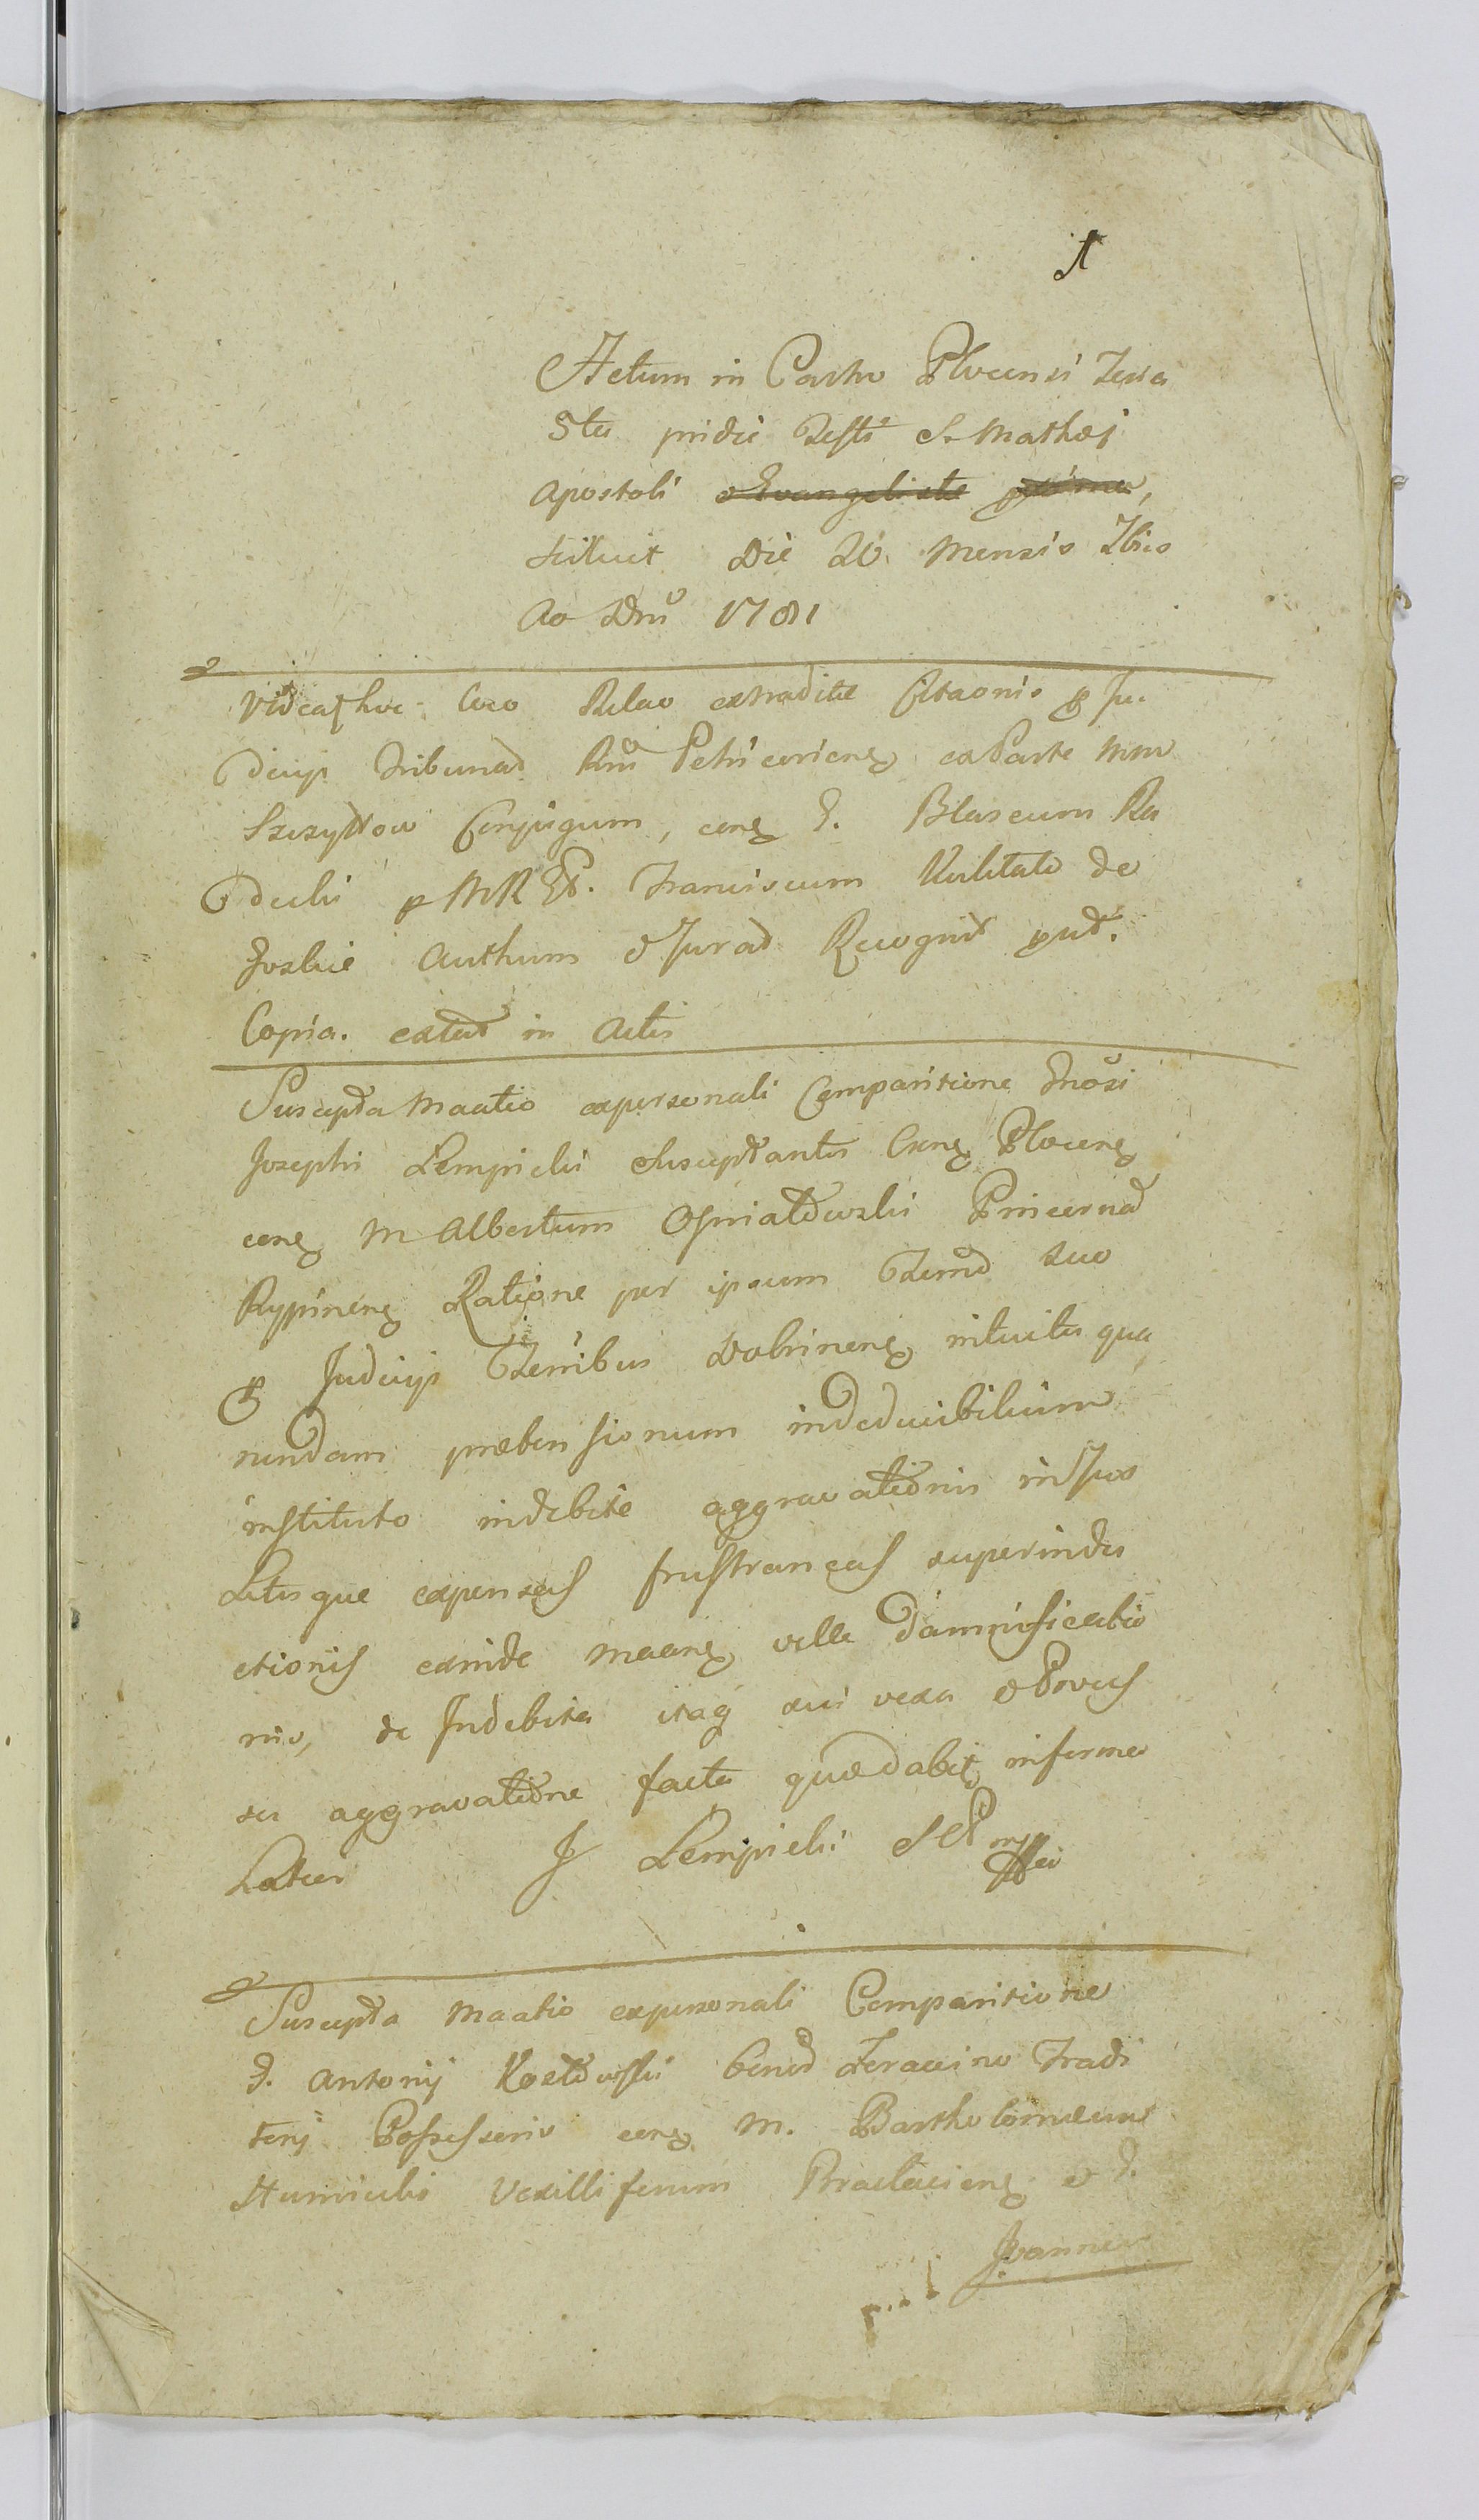 Actum in Castro Plocensi Feria
5ta pridie Festi S. Mathæi
Apostoli et Evangelistæ proxima,
scilicet Die 20 Mensis 7bris
Ao Dni 1781
Videat hoc loco Relao extraditæ Citaonis p Ju
dicijs Tribunal Petricovien ex Parte MM
Szczytow Conjugum, con G. Blasium Ra
decki p MR Franciscum de
Authum et Jurad Recognit put
Copia extat in Actis
Suscepta Maatio ex personali Comparitione Gnosi
Josephi Lempicki Susceptantis Cren Plocen
con M Albertum Osmiałdowski Pincernad
Rypinen Ratione per ipsum Termd suo
p Judicijs Terribus Dobrinen intuitu qua
rundam prætensionum indeducibilium
instituto indebitæ aggravationis in Jus
Litisque expensas frustraneas superindu
ctionis exinde Maaen velle damnificatio
nis, de Indebita itaq sui vexa et Provas
sa aggravatione facta quædabit informa
Latius J Lempicki SCP mppa
Suscepta Maatio ex personali Comparitione
G. Antonij bonod Tradi
torij Possessoris con M. Bartholomæum
Humiecki Vexilliferum Braclavien et G.
Joannem